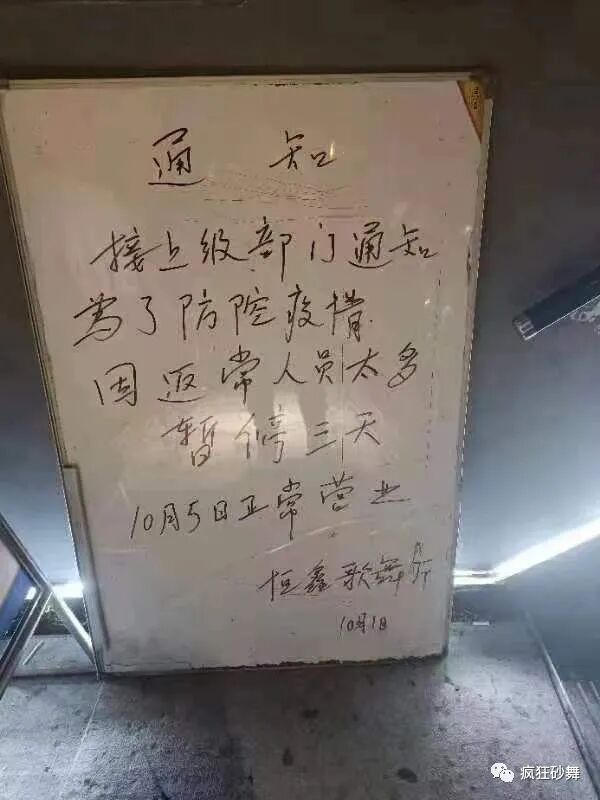 通 知
接上级部门通知
为了防控疫情
因返常人员太多
暂停三天
10月5日正常营业
恒鑫歌舞厅
10月1日
疯狂砂舞